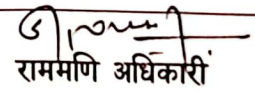 राममणि अधिकारी